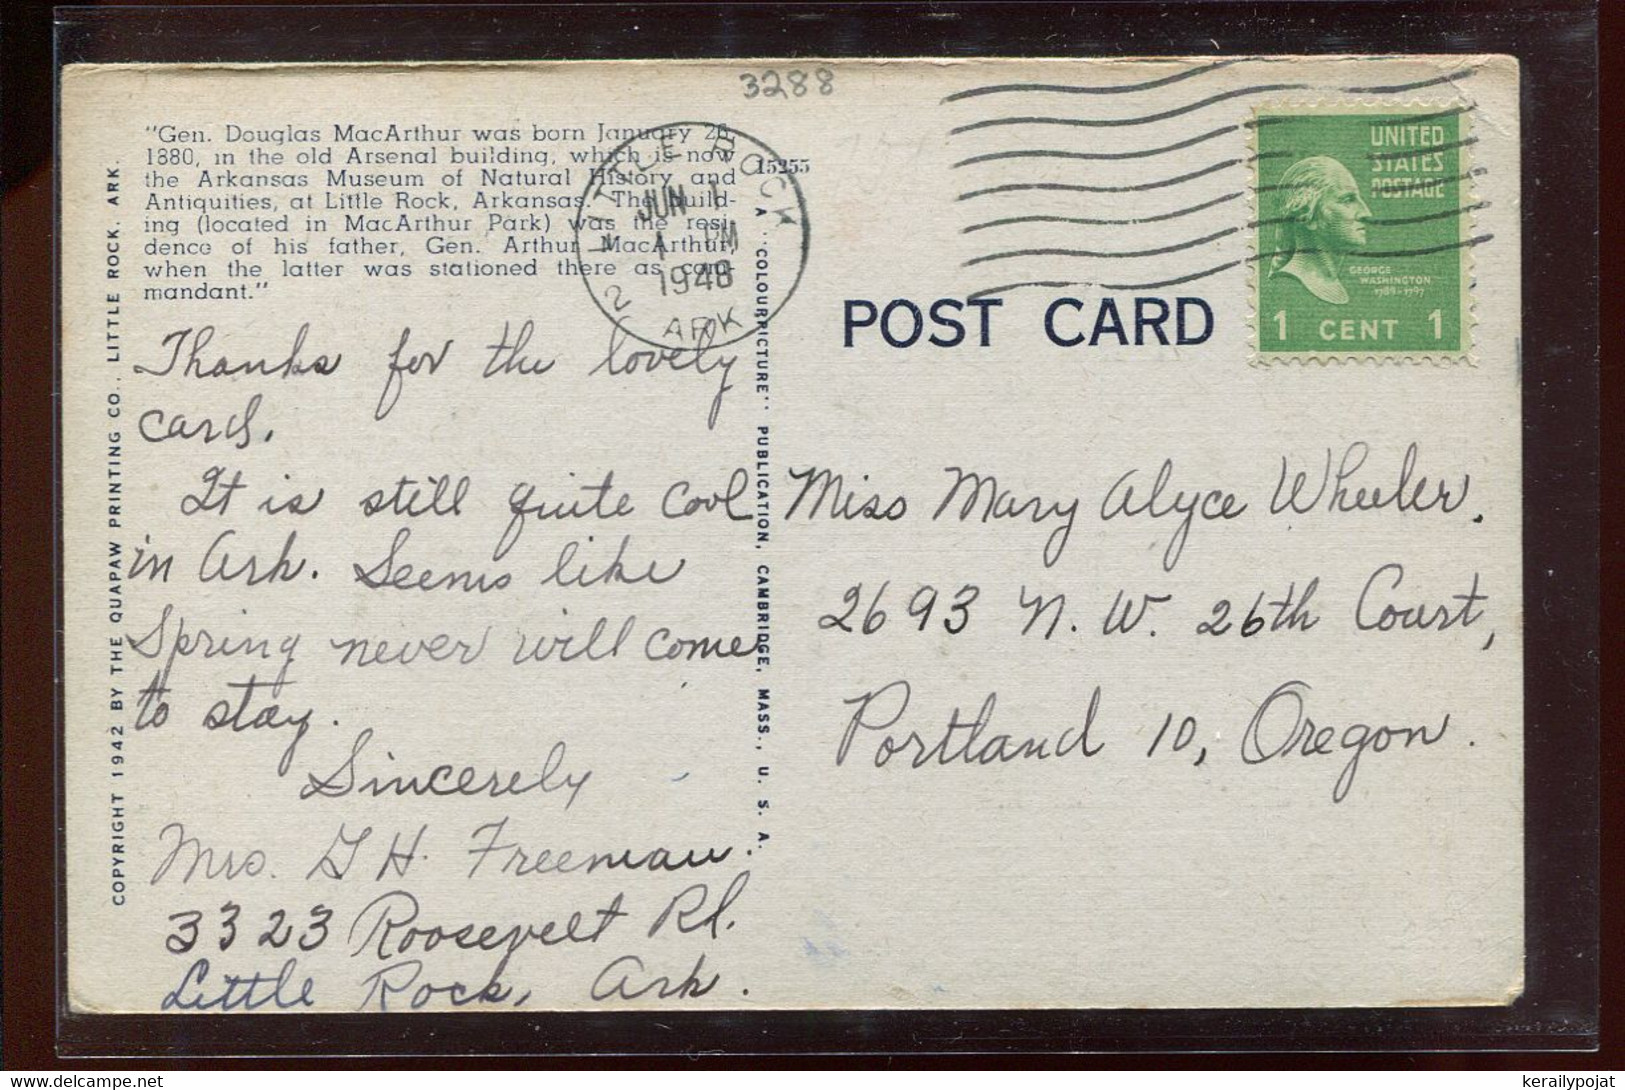 3288
"Gen. Douglas MacArthur was born January 26,
1880, in the old Arsenal building, which is now
the Arkansas Museum of Natural History and
Antiquities, at Little Rock, Arkansas. The build-
ing (located in MacArthur Park) was the resi-
dence of his father, Gen. Arthur MacArthur,
when the latter was stationed there as com-
mandant."
15255
LITTLE ROCK
JUN 1
1 PM
1948
ARK
2
UNITED
STATES
POSTAGE
GEORGE
WASHINGTON
1789-1797
1 CENT 1
POST CARD
COPYRIGHT 1942 BY THE QUAPAW PRINTING CO., LITTLE ROCK, ARK.
A "COLOURPICTURE" PUBLICATION, CAMBRIDGE, MASS., U. S. A.
Thanks for the lovely
card.
It is still quite cool
in Ark. Seems like
Spring never will come
to stay.
Sincerely
Mrs. G H. Freeman.
3323 Roosevelt Rd.
Little Rock, Ark.
Miss Mary Alyce Wheeler.
2693 N. W. 26th Court,
Portland 10, Oregon.
www.delcampe.net
kerailypojat